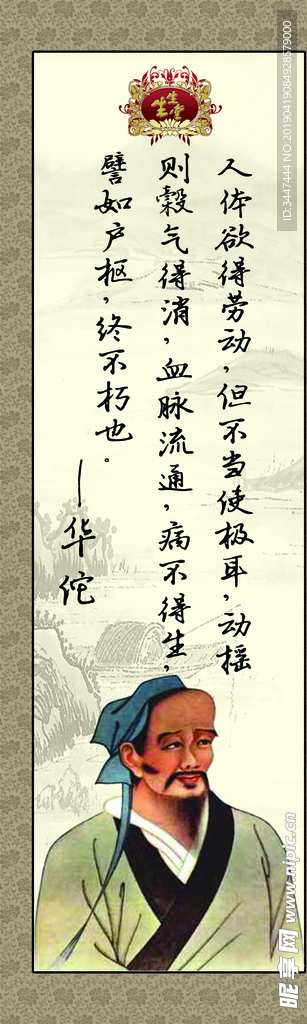 生生堂
人体欲得劳动，但不当使极耳，动摇
则榖气得消，血脉流通，病不得生，
譬如户枢，终不朽也。
—华佗
ID:3447444 NO:20190419084928579000
昵享网 www.nipic.cn